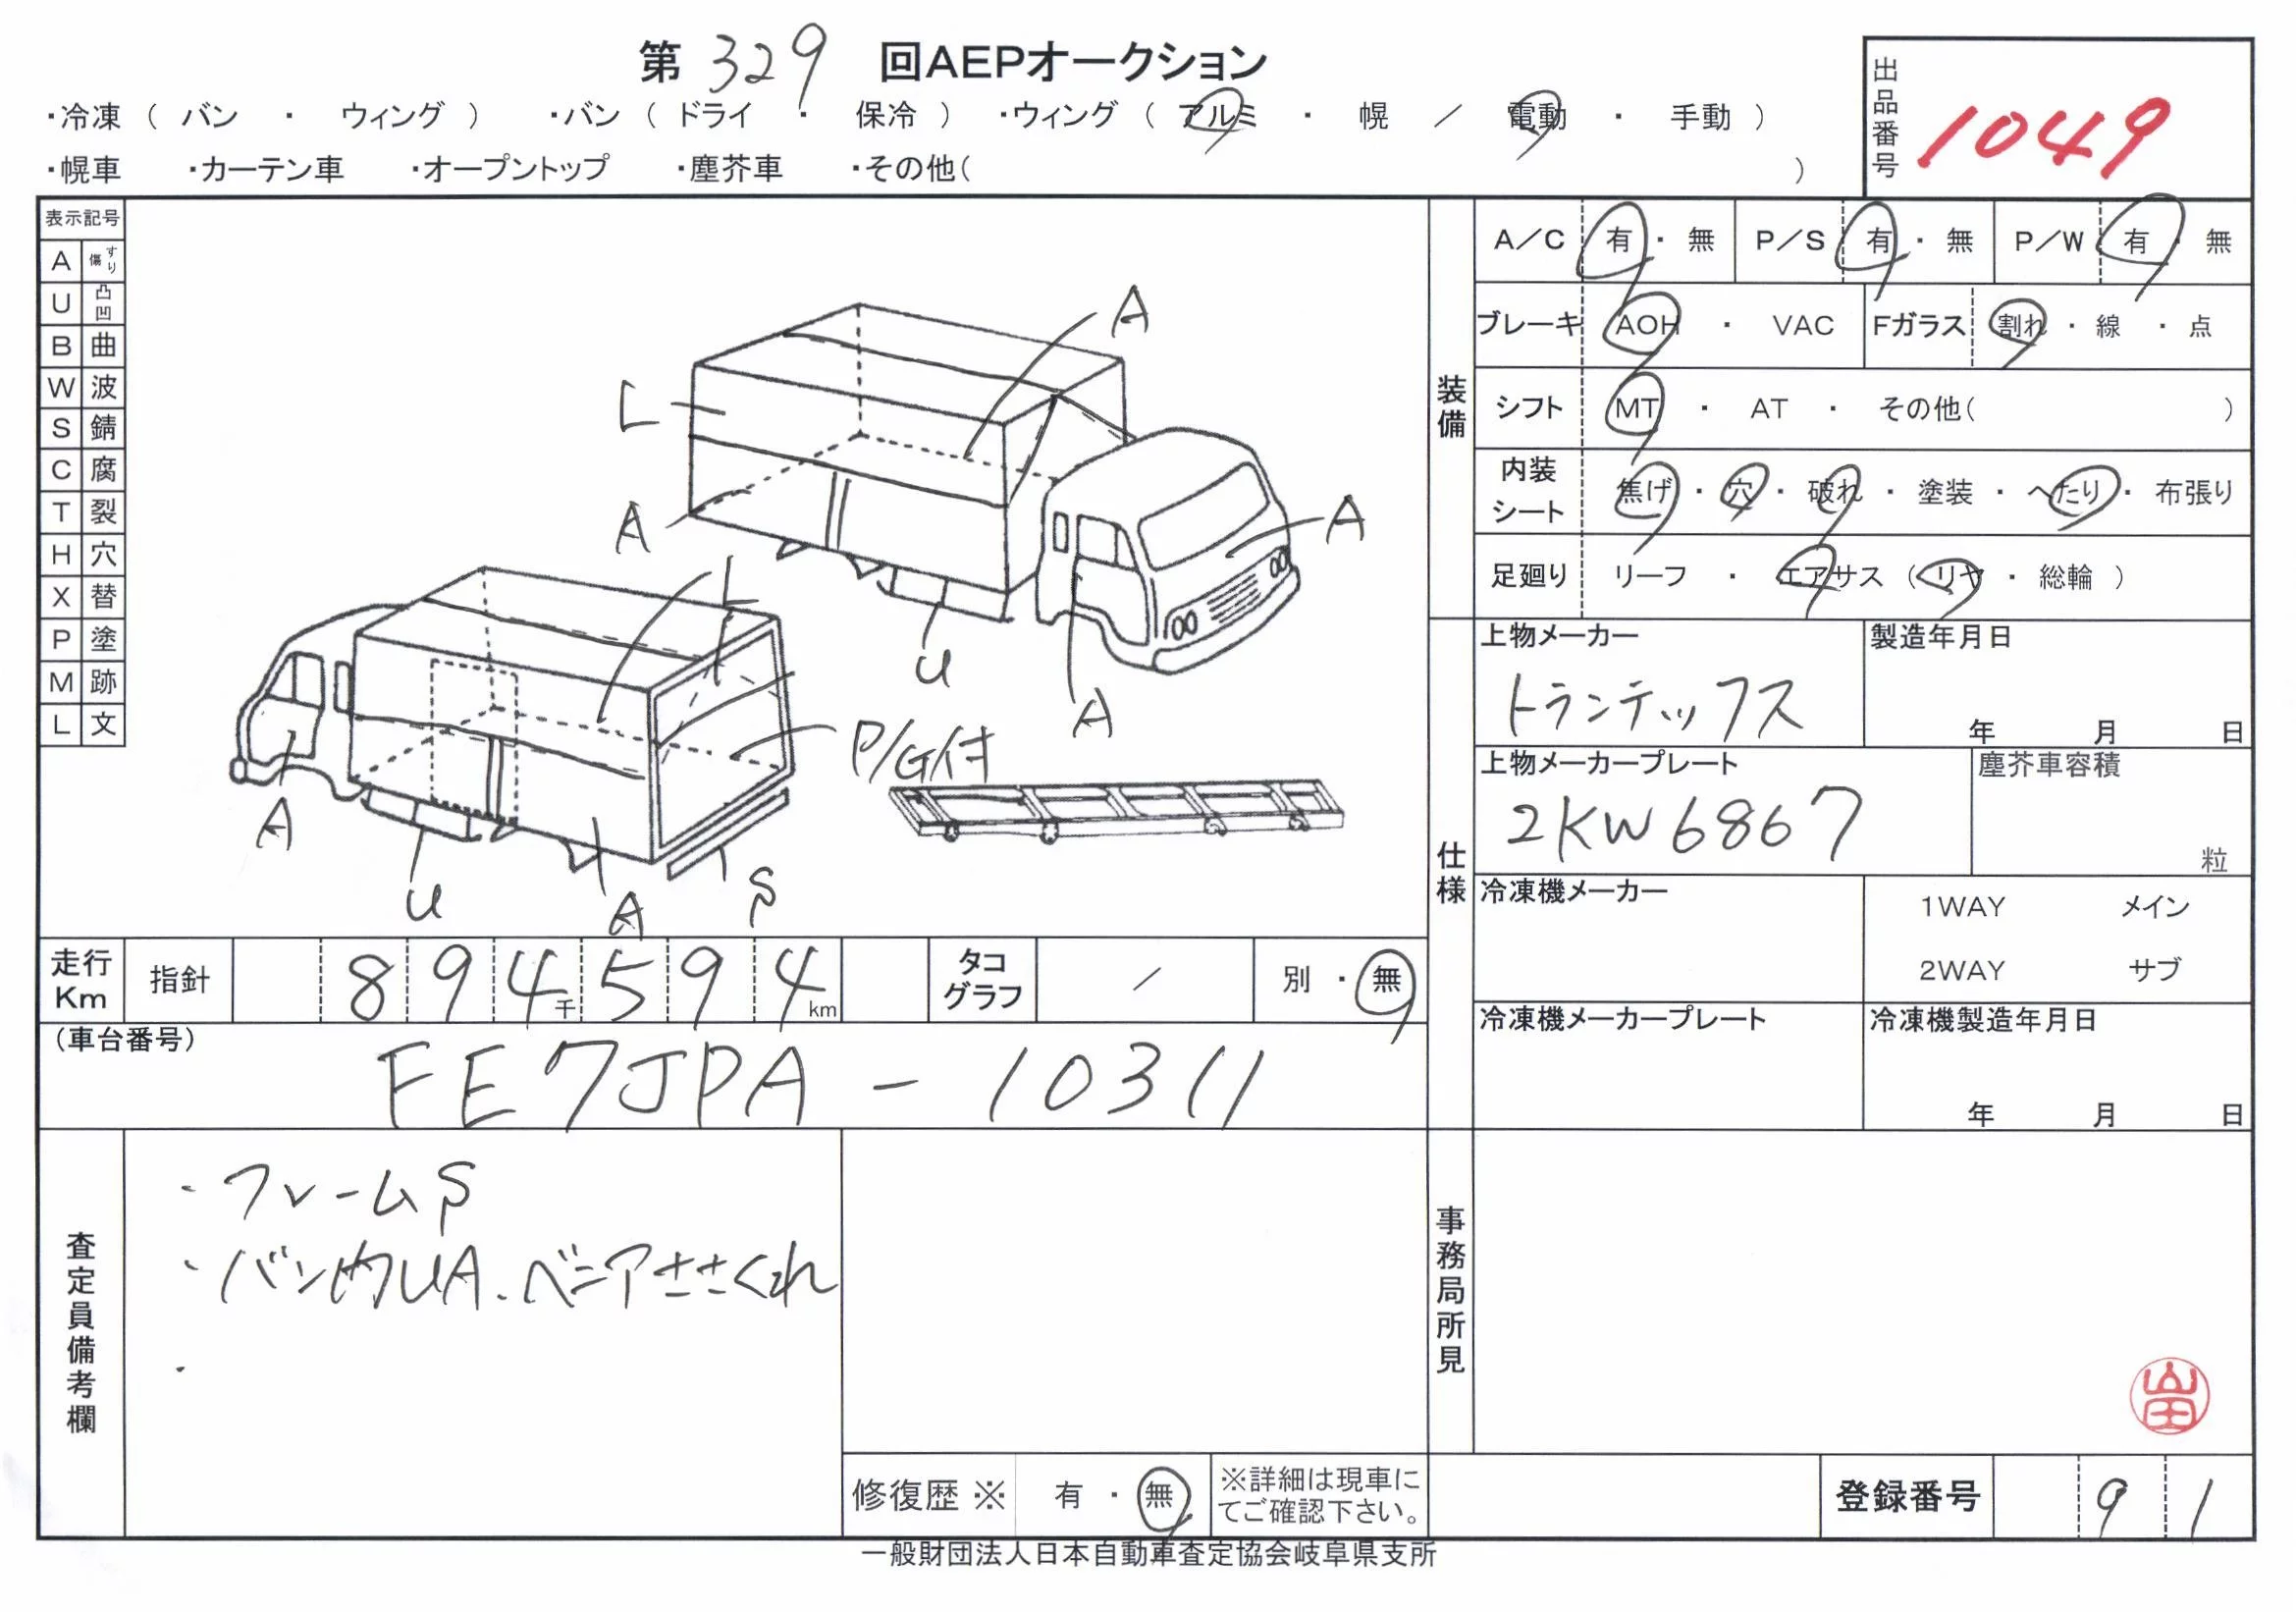 第 329 回AEPオークション
・冷凍（ バン ・ ウィング ） ・バン（ ドライ ・ 保冷 ） ・ウィング（ アルミ ・ 幌 ／ 電動 ・ 手動 ）
・幌車 ・カーテン車 ・オープントップ ・塵芥車 ・その他（ ）
出品番号 1049
表示記号
A すり傷
U 凸凹
B 曲
W 波
S 錆
C 腐
T 裂
H 穴
X 替
P 塗
M 跡
L 文
A
L
A
A
U
A
L
P/G付
A
U
A
S
装備
A／C 有・無 P／S 有・無 P／W 有・無
ブレーキ AOH ・ VAC Fガラス 割れ・線・点
シフト MT ・ AT ・ その他（ ）
内装シート 焦げ・穴・破れ・塗装・へたり・布張り
足廻り リーフ ・ エアサス（ リヤ ・ 総輪 ）
仕様
上物メーカー トランテックス
製造年月日 年 月 日
上物メーカープレート 2KW6867
塵芥車容積 粒
冷凍機メーカー
1WAY メイン
2WAY サブ
冷凍機メーカープレート
冷凍機製造年月日 年 月 日
走行Km 指針 894千594km タコグラフ ／ 別・無
（車台番号） FE7JPA - 10311
査定員備考欄
・フレームS
・バン内UA.ベニアささくれ
・
事務局所見
修復歴 ※ 有・無 ※詳細は現車にてご確認下さい。
登録番号 91
一般財団法人日本自動車査定協会岐阜県支所